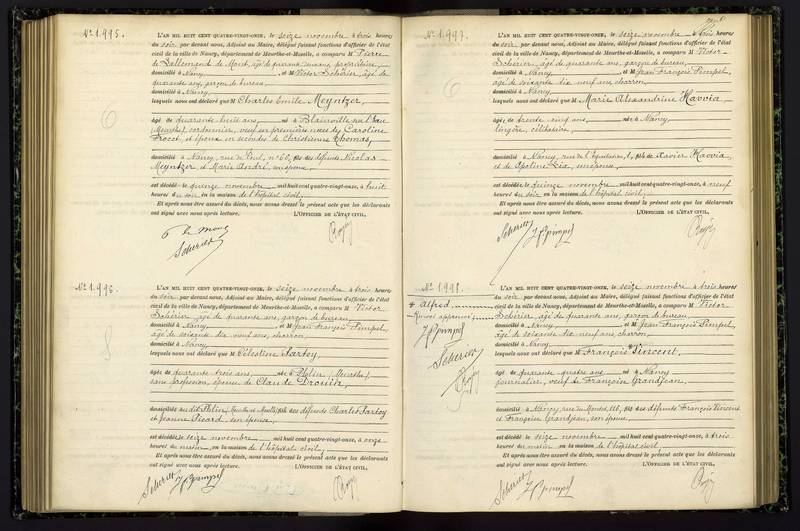 N° 1.995.
L'AN MIL HUIT CENT QUATRE-VINGT-ONZE, le seize novembre à trois heures
du soir par devant nous, Adjoint au Maire, délégué faisant fonctions d'officier de l'état
civil de la ville de Nancy, département de Meurthe-et-Moselle, a comparu M Pierre
de Lallemand de Mont, âgé de quarante cinq ans, propriétaire,
domicilié à Nancy, et M Victor Schérier, âgé de
quarante ans, garçon de bureau,
domicilié à Nancy,
lesquels nous ont déclaré que M Charles Emile Meyntzer,
âgé de quarante huit ans, né à Blainville sur l'eau
(Meurthe), cordonnier, veuf en premières noces de Caroline
Frocot, et époux en secondes de Christienne Thomas,
domicilié à Nancy, rue de n° 60, fils des défunts Nicolas
Meyntzer et Marie André, son épouse,
est décédé le quinze novembre mil huit cent quatre-vingt-onze, à huit
heures du soir, en la maison de l'hôpital civil,
Et après nous être assuré du décès, nous avons dressé le présent acte que les déclarants
ont signé avec nous après lecture. L'OFFICIER DE L'ÉTAT CIVIL,
Scherier
N° 1.996.
L'AN MIL HUIT CENT QUATRE-VINGT-ONZE, le seize novembre à trois heures
du soir par devant nous, Adjoint au Maire, délégué faisant fonctions d'officier de l'état
civil de la ville de Nancy, département de Meurthe-et-Moselle, a comparu M Victor
Schérier, âgé de quarante ans, garçon de bureau,
domicilié à Nancy, et M Jean François Pimpel,
âgé de soixante dix neuf ans, charron,
domicilié à Nancy,
lesquels nous ont déclaré que M Célestine Partoy
âgée de quarante trois ans, née à (Meurthe),
sans profession, épouse de Claude Drouin,
domiciliée fille des défunts Charles Partoy
et Jeanne Picard, son épouse,
est décédée le seize novembre mil huit cent quatre-vingt-onze, à onze
heures du matin, en la maison de l'hôpital civil,
Et après nous être assuré du décès, nous avons dressé le présent acte que les déclarants
ont signé avec nous après lecture. L'OFFICIER DE L'ÉTAT CIVIL,
Scherier JFpimpel
N° 1.997.
L'AN MIL HUIT CENT QUATRE-VINGT-ONZE, le seize novembre à trois heures
du soir par devant nous, Adjoint au Maire, délégué faisant fonctions d'officier de l'état
civil de la ville de Nancy, département de Meurthe-et-Moselle, a comparu M Victor
Schérier, âgé de quarante ans, garçon de bureau,
domicilié à Nancy, et M Jean François Pimpel,
âgé de soixante dix neuf ans, charron,
domicilié à Nancy,
lesquels nous ont déclaré que M Marie Alexandrine Havvia,
âgée de trente neuf ans, née à Nancy,
lingère, célibataire,
domiciliée à Nancy, rue de l'Equitation, 1, fille de Xavier Havvia,
et de Apoline son épouse,
est décédée le quinze novembre mil huit cent quatre-vingt-onze, à neuf
heures du soir en la maison de l'hôpital civil,
Et après nous être assuré du décès, nous avons dressé le présent acte que les déclarants
ont signé avec nous après lecture. L'OFFICIER DE L'ÉTAT CIVIL,
Scherier JFpimpel
N° 1.998.
* Alfred,
Renvoi approuvé
JFpimpel
Scherier
L'AN MIL HUIT CENT QUATRE-VINGT-ONZE, le seize novembre à trois heures
du soir par devant nous, Adjoint au Maire, délégué faisant fonctions d'officier de l'état
civil de la ville de Nancy, département de Meurthe-et-Moselle, a comparu M Victor
Schérier, âgé de quarante ans, garçon de bureau,
domicilié à Nancy, et M Jean François Pimpel,
âgé de soixante dix neuf ans, charron,
domicilié à Nancy,
lesquels nous ont déclaré que M François * Vincent,
âgé de quarante quatre ans, né à Nancy
journalier, veuf de Françoise Grandjean,
domicilié à Nancy, rue du Montet, 116, fils des défunts François Vincent
et Françoise Grandjean, son épouse,
est décédé le seize novembre mil huit cent quatre-vingt-onze, à trois
heures du matin en la maison de l'hôpital civil,
Et après nous être assuré du décès, nous avons dressé le présent acte que les déclarants
ont signé avec nous après lecture. L'OFFICIER DE L'ÉTAT CIVIL,
Scherier JFpimpel